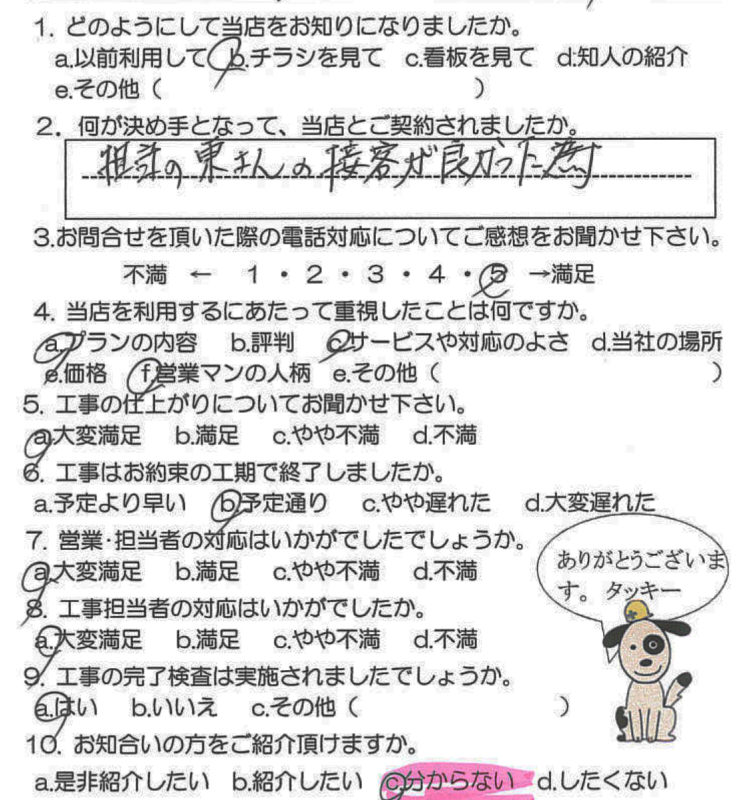 1. どのようにして当店をお知りになりましたか。
a.以前利用して b.チラシを見て c.看板を見て d.知人の紹介
e.その他（ ）
2. 何が決め手となって、当店とご契約されましたか。
担当の東さんの接客が良かった為
3.お問合せを頂いた際の電話対応についてご感想をお聞かせ下さい。
不満 ← 1・2・3・4・5 →満足
4. 当店を利用するにあたって重視したことは何ですか。
a.プランの内容 b.評判 c.サービスや対応のよさ d.当社の場所
e.価格 f.営業マンの人柄 e.その他（ ）
5. 工事の仕上がりについてお聞かせ下さい。
a.大変満足 b.満足 c.やや不満 d.不満
6. 工事はお約束の工期で終了しましたか。
a.予定より早い b.予定通り c.やや遅れた d.大変遅れた
7. 営業・担当者の対応はいかがでしたでしょうか。
a.大変満足 b.満足 c.やや不満 d.不満
8. 工事担当者の対応はいかがでしたか。
a.大変満足 b.満足 c.やや不満 d.不満
9. 工事の完了検査は実施されましたでしょうか。
a.はい b.いいえ c.その他（ ）
10. お知合いの方をご紹介頂けますか。
a.是非紹介したい b.紹介したい c.分からない d.したくない
ありがとうございま
す。 タッキー